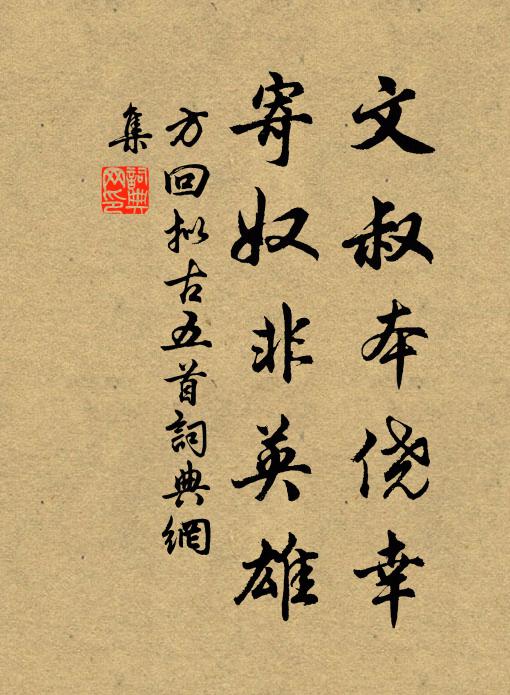 文叔本侥幸
寄奴非英雄
方回拟古五首詞典網
集
詞典网印